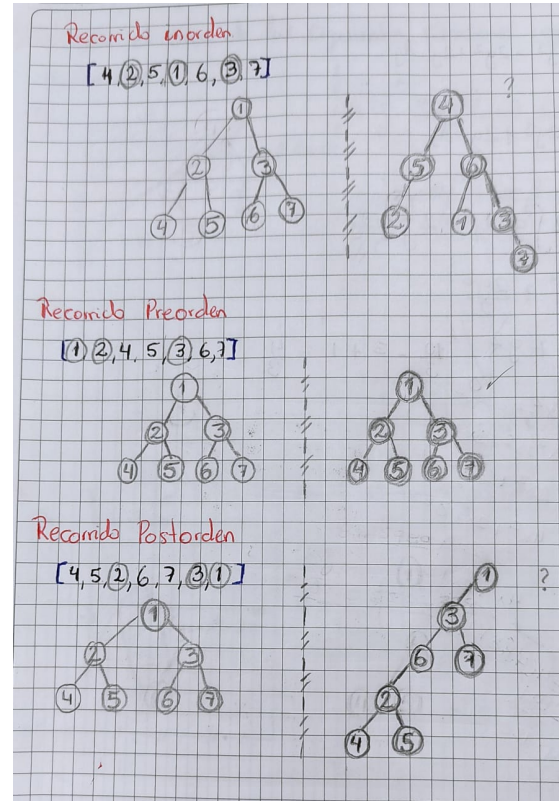 Recorrido inorden
[4,2,5,1,6,3,7]
?
1 4
2 3 5 6
4 5 6 7 2 1 3
7
Recorrido Preorden
[1 2,4,5,3,6,7]
1 1
2 3 2 3
4 5 6 7 4 5 6 7
Recorrido Postorden
[4,5,2,6,7,3,1]
1 ?
1 3
2 3 6 7
4 5 6 7 2
4 5